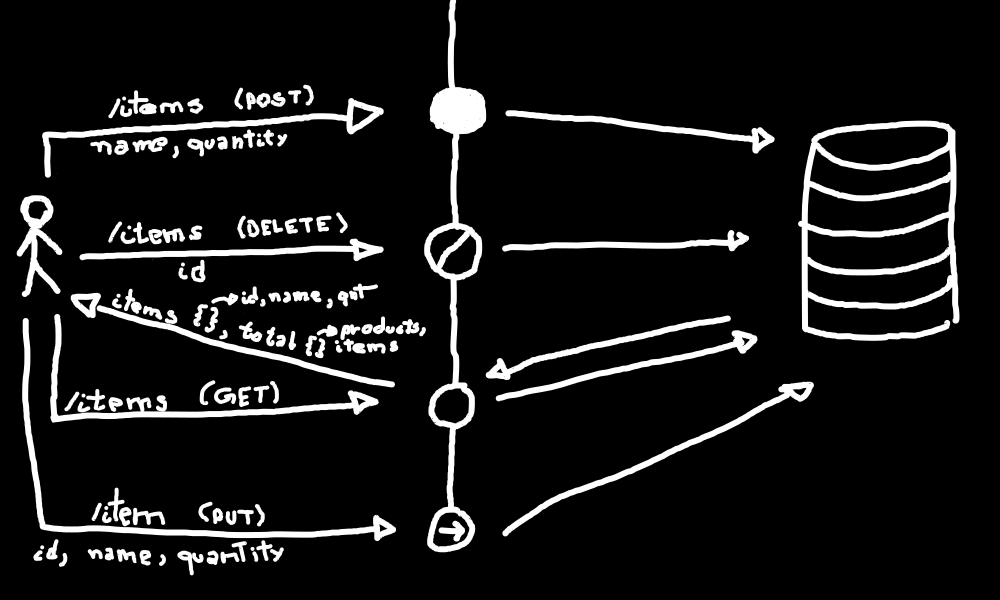 /items (POST)
name, quantity
/items (DELETE)
id
items {} → id, name, qnt
, total {} → products,
items
/items (GET)
/item (PUT)
id, name, quantity